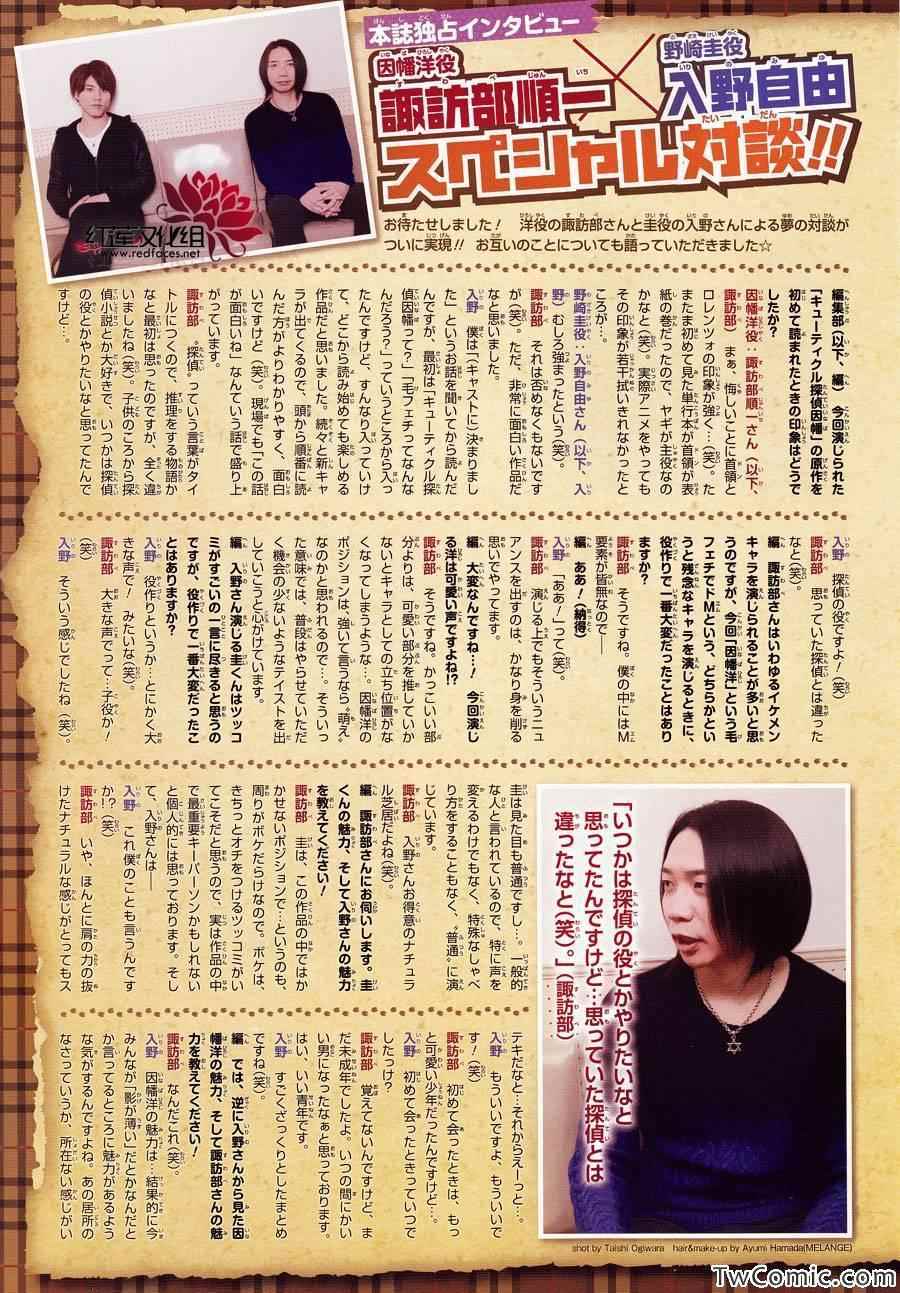 本誌独占インタビュー
因幡洋役
諏訪部順一
×
野崎圭役
入野自由
スペシャル対談!!
お待たせしました! 洋役の諏訪部さんと圭役の入野さんによる夢の対談が
ついに実現!! お互いのことについても語っていただきました☆
紅莲文化组
www.redfaces.net
編集部(以下、編) 今回演じられた
「キューティクル探偵因幡」の原作を
初めて読まれたときの印象はどうで
したか?
因幡洋役:諏訪部順一さん(以下、
諏訪部) まぁ、悔しいことに首領と
ロレンツォの印象が強く…(笑)。た
またま初めて見た単行本が首領が表
紙の巻だったので、ヤギが主役なの
かなと(笑)。実際アニメをやっても
その印象が若干拭いきれなかったと
ころが…。
野崎圭役:入野自由さん(以下、入
野) むしろ強まったという(笑)。
諏訪部 それは否めなくもないです
が(笑)。ただ、非常に面白い作品だ
なと思いました。
入野 僕は「(キャストに)決まりまし
た」というお話を聞いてから読んだ
んですが、最初は「キューティクル探
偵因幡って?」「毛フェチってなんな
んだろう?」っていうところから入っ
たんですけど、すんなり入っていけ
て、どこから読み始めても楽しめる
作品だと思いました。続々と新キャ
ラが出てくるので、頭から順番に読
んだ方がよりわかりやすく、面白
いですけど(笑)。現場でも「この話
が面白いね」なんていう話で盛り上
がっています。
諏訪部 “探偵”っていう言葉がタイ
トルにつくので、推理をする物語か
なと最初は思ったのですが、全く違
いましたね(笑)。子供のころから探
偵小説とか大好きで、いつかは探偵
の役とかやりたいなと思ってたんで
すけど…。
入野 探偵の役ですよ!(笑)
諏訪部 思っていた探偵とは違った
なと(笑)。
編 諏訪部さんはいわゆるイケメン
キャラを演じられることが多いと思
うのですが、今回「因幡洋」という毛
フェチでドMという、どちらかとい
うと残念なキャラを演じるときに、
役作りで一番大変だったことはあり
ますか?
諏訪部 そうですね。僕の中にはM
要素が皆無なので——
編 ああ!(納得)
入野 「ああ!」って(笑)。
諏訪部 演じる上でもそういうニュ
アンスを出すのは、かなり身を削る
思いでやってます。
編 大変なんですね…! 今回演じ
る洋は可愛い声ですよね!?
諏訪部 そうですね。かっこいい部
分よりは、可愛い部分を推していか
ないとキャラとしての立ち位置がな
くなってしまうような…。因幡洋の
ポジションは、強いて言うなら“萌え”
なのかと思われるので…。そういっ
た意味では、普段はやらせていただ
く機会の少ないようなテイストを出
していこうと心がけています。
編 入野さん演じる圭くんはツッコ
ミがすごいの一言に尽きると思うの
ですが、役作りで一番大変だったこ
とはありますか?
入野 役作りというか…とにかく大
きな声で! みたいな(笑)。
諏訪部 大きな声でって…子役か!
(笑)
入野 そういう感じでしたね(笑)。
圭は見た目も普通ですし…。一般的
な人と言われているので、特に声を
変えるわけでもなく、特殊なしゃべ
り方をすることもなく、“普通”に演
じています。
諏訪部 入野さんお得意のナチュラ
ル芝居だよね(笑)。
編 諏訪部さんにお伺いします。圭
くんの魅力、そして入野さんの魅力
を教えてください!
諏訪部 圭は、この作品の中では欠
かせないポジションで…というのも、
周りがボケだらけなので。ボケは、
きちっとオチをつけるツッコミがい
てこそだと思うので、実は作品の中
で最重要キーパーソンかもしれない
と個人的には思っております。そし
て、入野さんは——
入野 これ僕のことも言うんです
か!?(笑)
諏訪部 いや、ほんとに肩の力の抜
けたナチュラルな感じがとってもス
「いつかは探偵の役とかやりたいなと
思ってたんですけど…思っていた探偵とは
違ったなと(笑)。」(諏訪部)
テキだなと…それからえーっと…。
入野 もういいですよ、もういいで
す!(笑)
諏訪部 初めて会ったときは、もっ
と可愛い少年だったんですけど…。
入野 初めて会ったときっていつで
したっけ?
諏訪部 覚えてないんですけど、ま
だ未成年でしたよ。いつの間にかい
い男になったなぁと思っております。
はい、いい青年です。
入野 すごくざっくりとしたまとめ
ですね(笑)。
編 では、逆に入野さんから見た因
幡洋の魅力、そして諏訪部さんの魅
力を教えてください!
諏訪部 なんだこれ(笑)。
入野 因幡洋の魅力は…結果的に今
みんなが「影が薄い」だとかなんだと
か言ってるところに魅力があるよう
な気がするんですよね。あの居所の
なさっていうか、所在ない感じがい
shot by Taishi Ogiwara hair&make-up by Ayumi Hamada(MELANGE)
TwComic.com